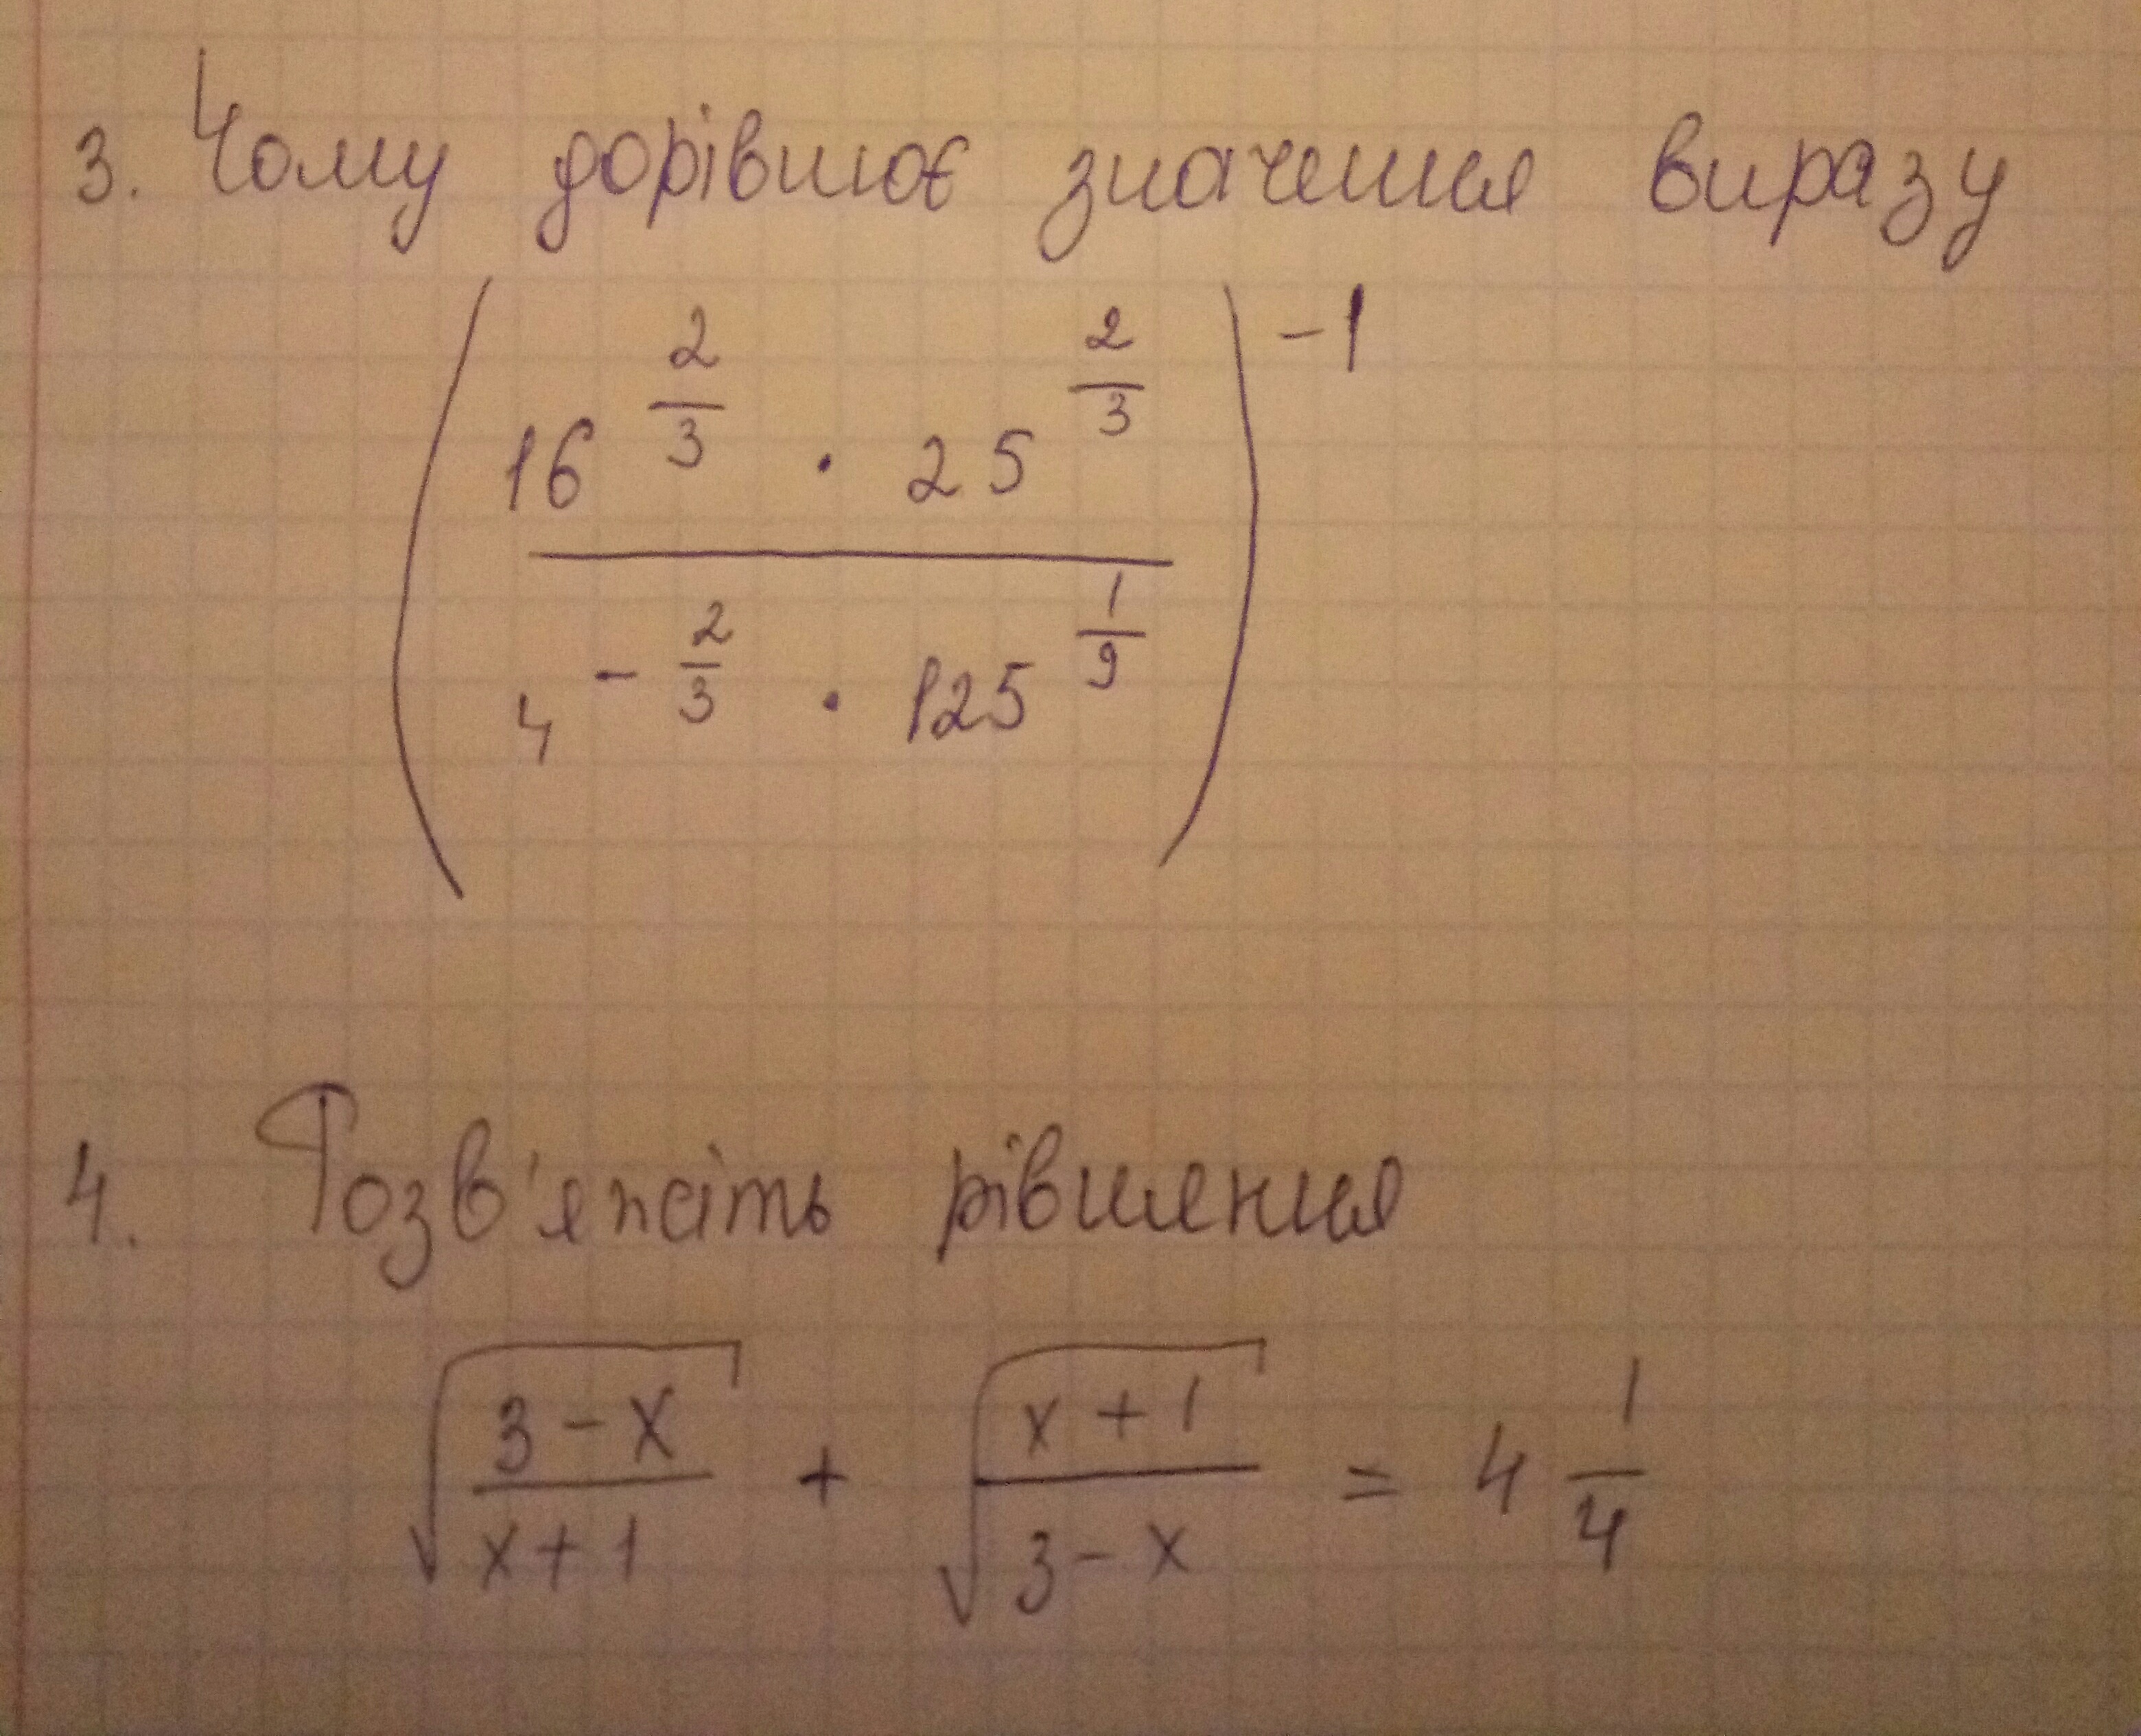 3. Чому дорівнює значення виразу
(16^(2/3) · 25^(2/3) / 4^(-2/3) · 125^(1/9))^(-1)
4. Розв'яжіть рівняння
√((3-x)/(x+1)) + √((x+1)/(3-x)) = 4 1/4